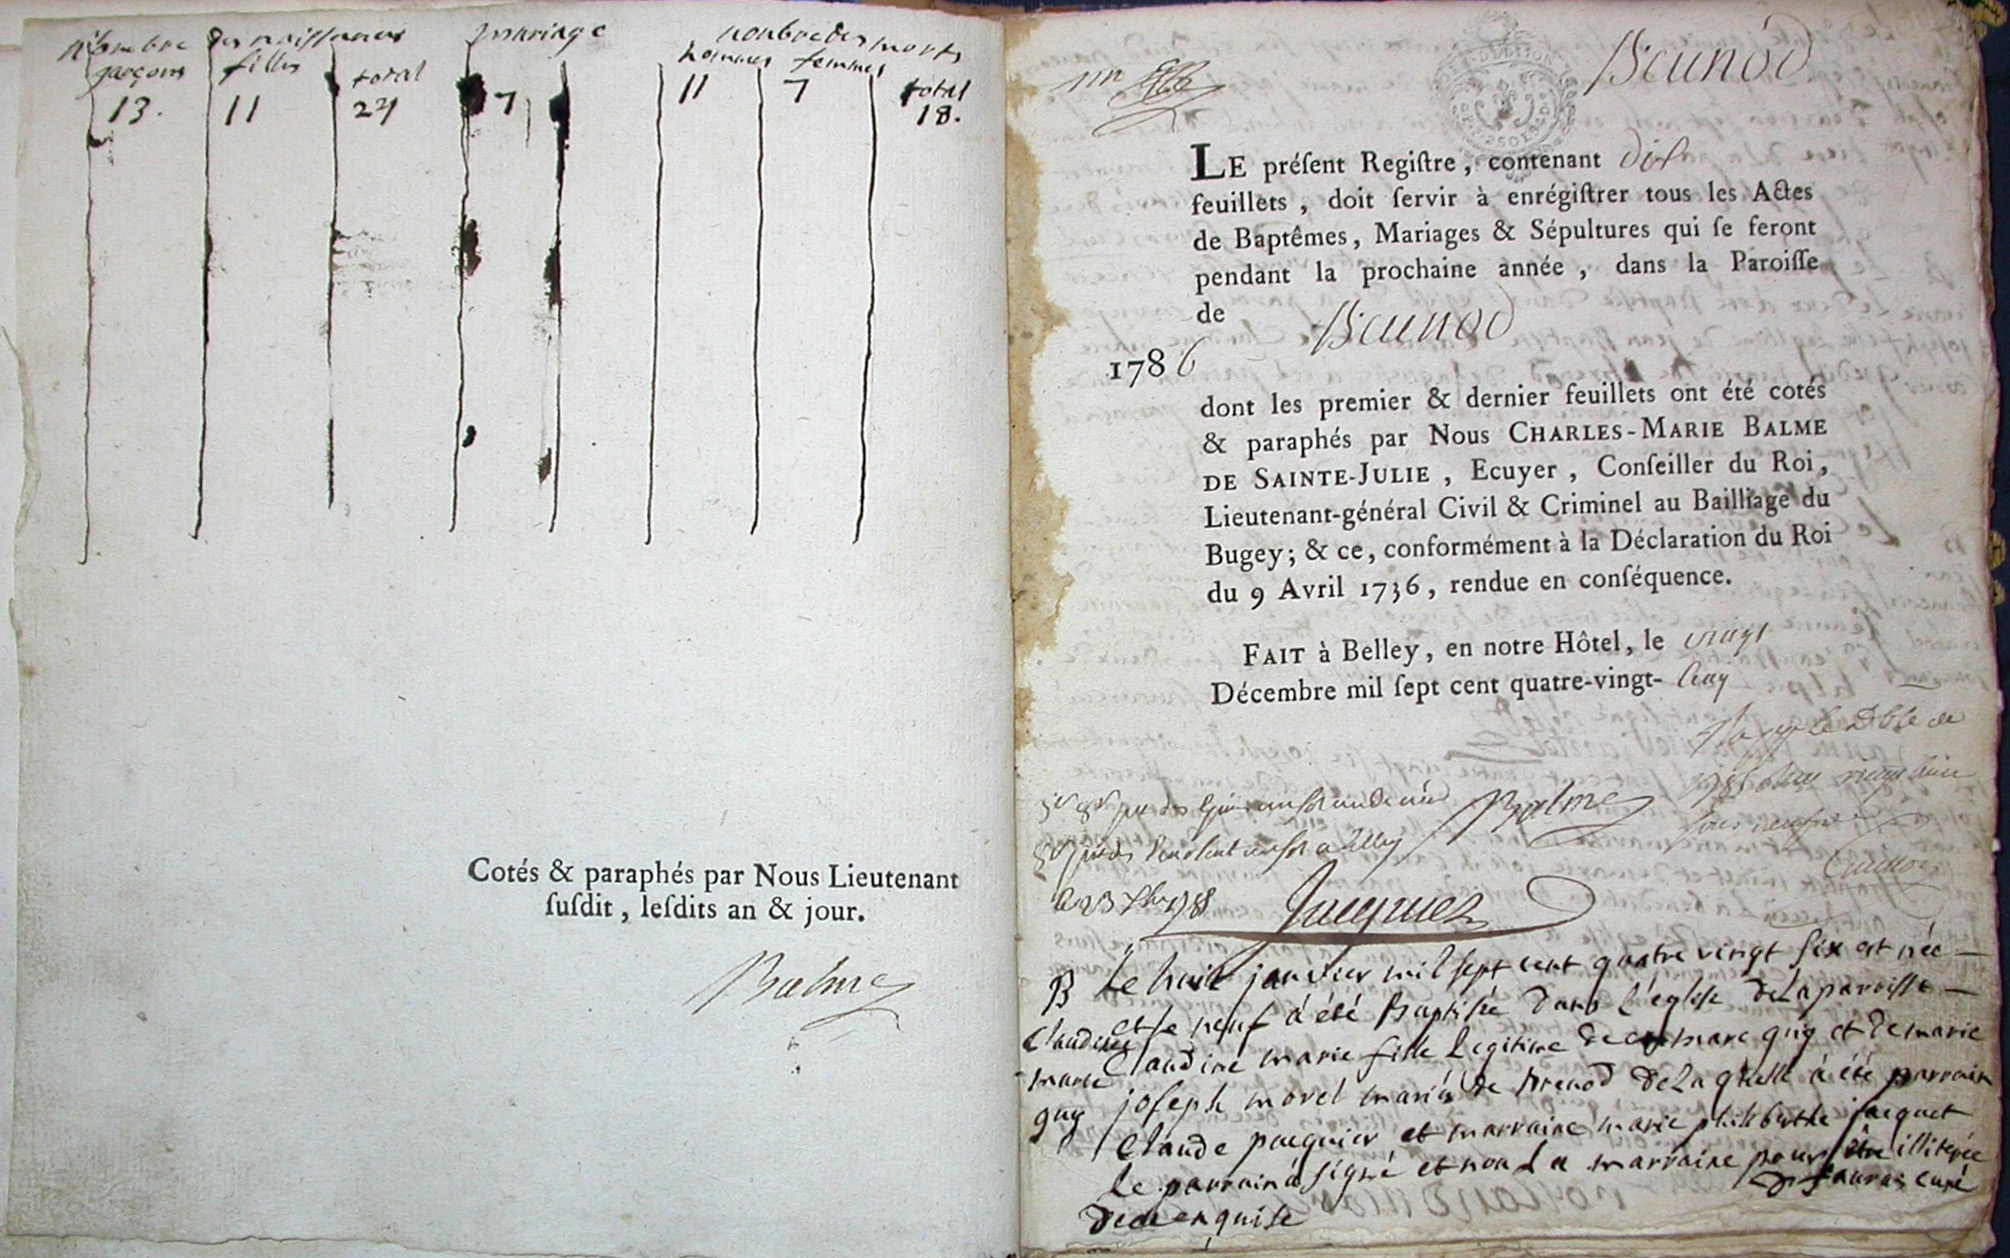 nombre des naissances mariage nombre des morts
garçons filles total hommes femmes total
13. 11 24 7 11 7 18.
Cotés & paraphés par Nous Lieutenant
ſuſdit, leſdits an & jour.
Balme
LE préſent Regiſtre, contenant dix
feuillets, doit ſervir à enrégiſtrer tous les Actes
de Baptêmes, Mariages & Sépultures qui ſe feront
pendant la prochaine année, dans la Paroiſſe
de
1786
dont les premier & dernier feuillets ont été cotés
& paraphés par Nous CHARLES-MARIE BALME
DE SAINTE-JULIE, Ecuyer, Conſeiller du Roi,
Lieutenant-général Civil & Criminel au Bailliage du
Bugey; & ce, conformément à la Déclaration du Roi
du 9 Avril 1736, rendue en conſéquence.
FAIT à Belley, en notre Hôtel, le vingt
Décembre mil ſept cent quatre-vingt- cinq
Balme
Jacquier
B Le huit janvier mil sept cent quatre vingt six est née
et le neuf à été Baptisée dans l'église de la paroisse
Claudine marie fille legitime de marc guy et de marie
marie
guy
joseph morel mariés de Brenod de laquelle à été parrain
Claude pacquier et marraine marie philiberthe jacquet
le parrain à signé et non la marraine pour être illiterée
de ce enquise
curé